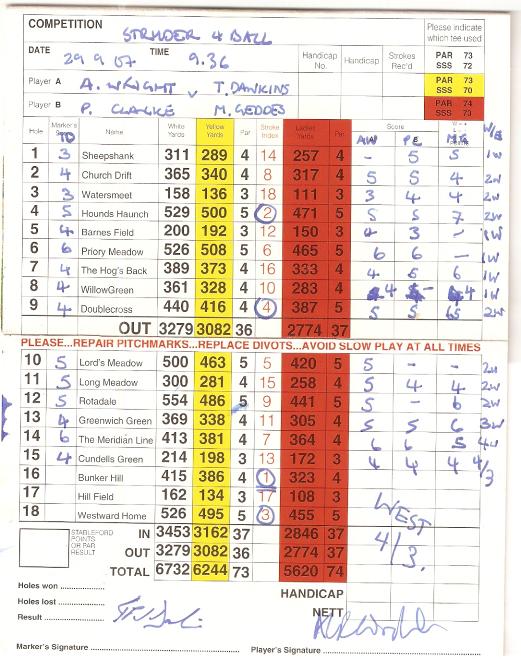 COMPETITION STRYDER 4 BALL Please indicate which tee used
DATE 29 9 07 TIME 9.36 Handicap No. Handicap Strokes Rec'd PAR 73 SSS 72
Player A A. WRIGHT v T. DAWKINS PAR 73 SSS 70
Player B P. CLARKE M. GEDDES PAR 74 SSS 73
Hole Marker's Score Name White Yards Yellow Yards Par Stroke Index Ladies' Yards Par Score
TD AW PC MG W/E
1 3 Sheepshank 311 289 4 14 257 4 - 5 5 1W
2 4 Church Drift 365 340 4 8 317 4 5 5 4 2W
3 3 Watersmeet 158 136 3 18 111 3 3 4 4 2W
4 5 Hounds Haunch 529 500 5 2 471 5 5 5 7 2W
5 4 Barnes Field 200 192 3 12 150 3 4 3 - 1W
6 6 Priory Meadow 526 508 5 6 465 5 6 6 - 1W
7 4 The Hog's Back 389 373 4 16 333 4 4 5 6 1W
8 4 WillowGreen 361 328 4 10 283 4 4 - 4 1W
9 4 Doublecross 440 416 4 4 387 5 5 5 5 2W
OUT 3279 3082 36 2774 37
PLEASE...REPAIR PITCHMARKS...REPLACE DIVOTS...AVOID SLOW PLAY AT ALL TIMES
10 5 Lord's Meadow 500 463 5 5 420 5 5 - - 2W
11 5 Long Meadow 300 281 4 15 258 4 5 4 4 2W
12 5 Rotadale 554 486 5 9 441 5 5 - 6 2W
13 4 Greenwich Green 369 338 4 11 305 4 5 5 6 3W
14 6 The Meridian Line 413 381 4 7 364 4 6 6 5 4W
15 4 Cundells Green 214 198 3 13 172 3 4 4 4 4/3
16 Bunker Hill 415 386 4 1 323 4
17 Hill Field 162 134 3 17 108 3
18 Westward Home 526 495 5 3 455 5
WEST 4/3.
STABLEFORD POINTS OR PAR RESULT
IN 3453 3162 37 2846 37
OUT 3279 3082 36 2774 37
TOTAL 6732 6244 73 5620 74
Holes won HANDICAP
Holes lost NETT
Result
Marker's Signature Player's Signature